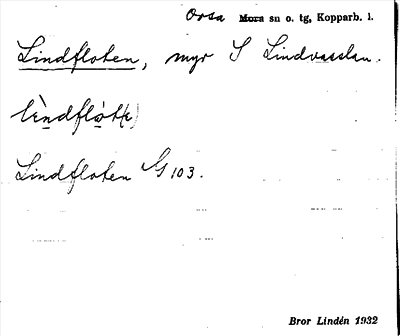 Orsa Mora sn o. tg, Kopparb. l.
Lindfloten, myr S Lindvasslan.
Lindfloten G 103.
Bror Lindén 1932